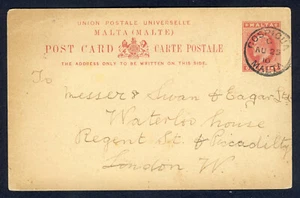 UNION POSTALE UNIVERSELLE
MALTA (MALTE)
POST CARD CARTE POSTALE
THE ADDRESS ONLY TO BE WRITTEN ON THIS SIDE.
MALTA
COSPICUA
AU
MALTA
To
Messers Swan & Edgar Ltd
Waterloo house
Regent St & Piccadilly
London W.